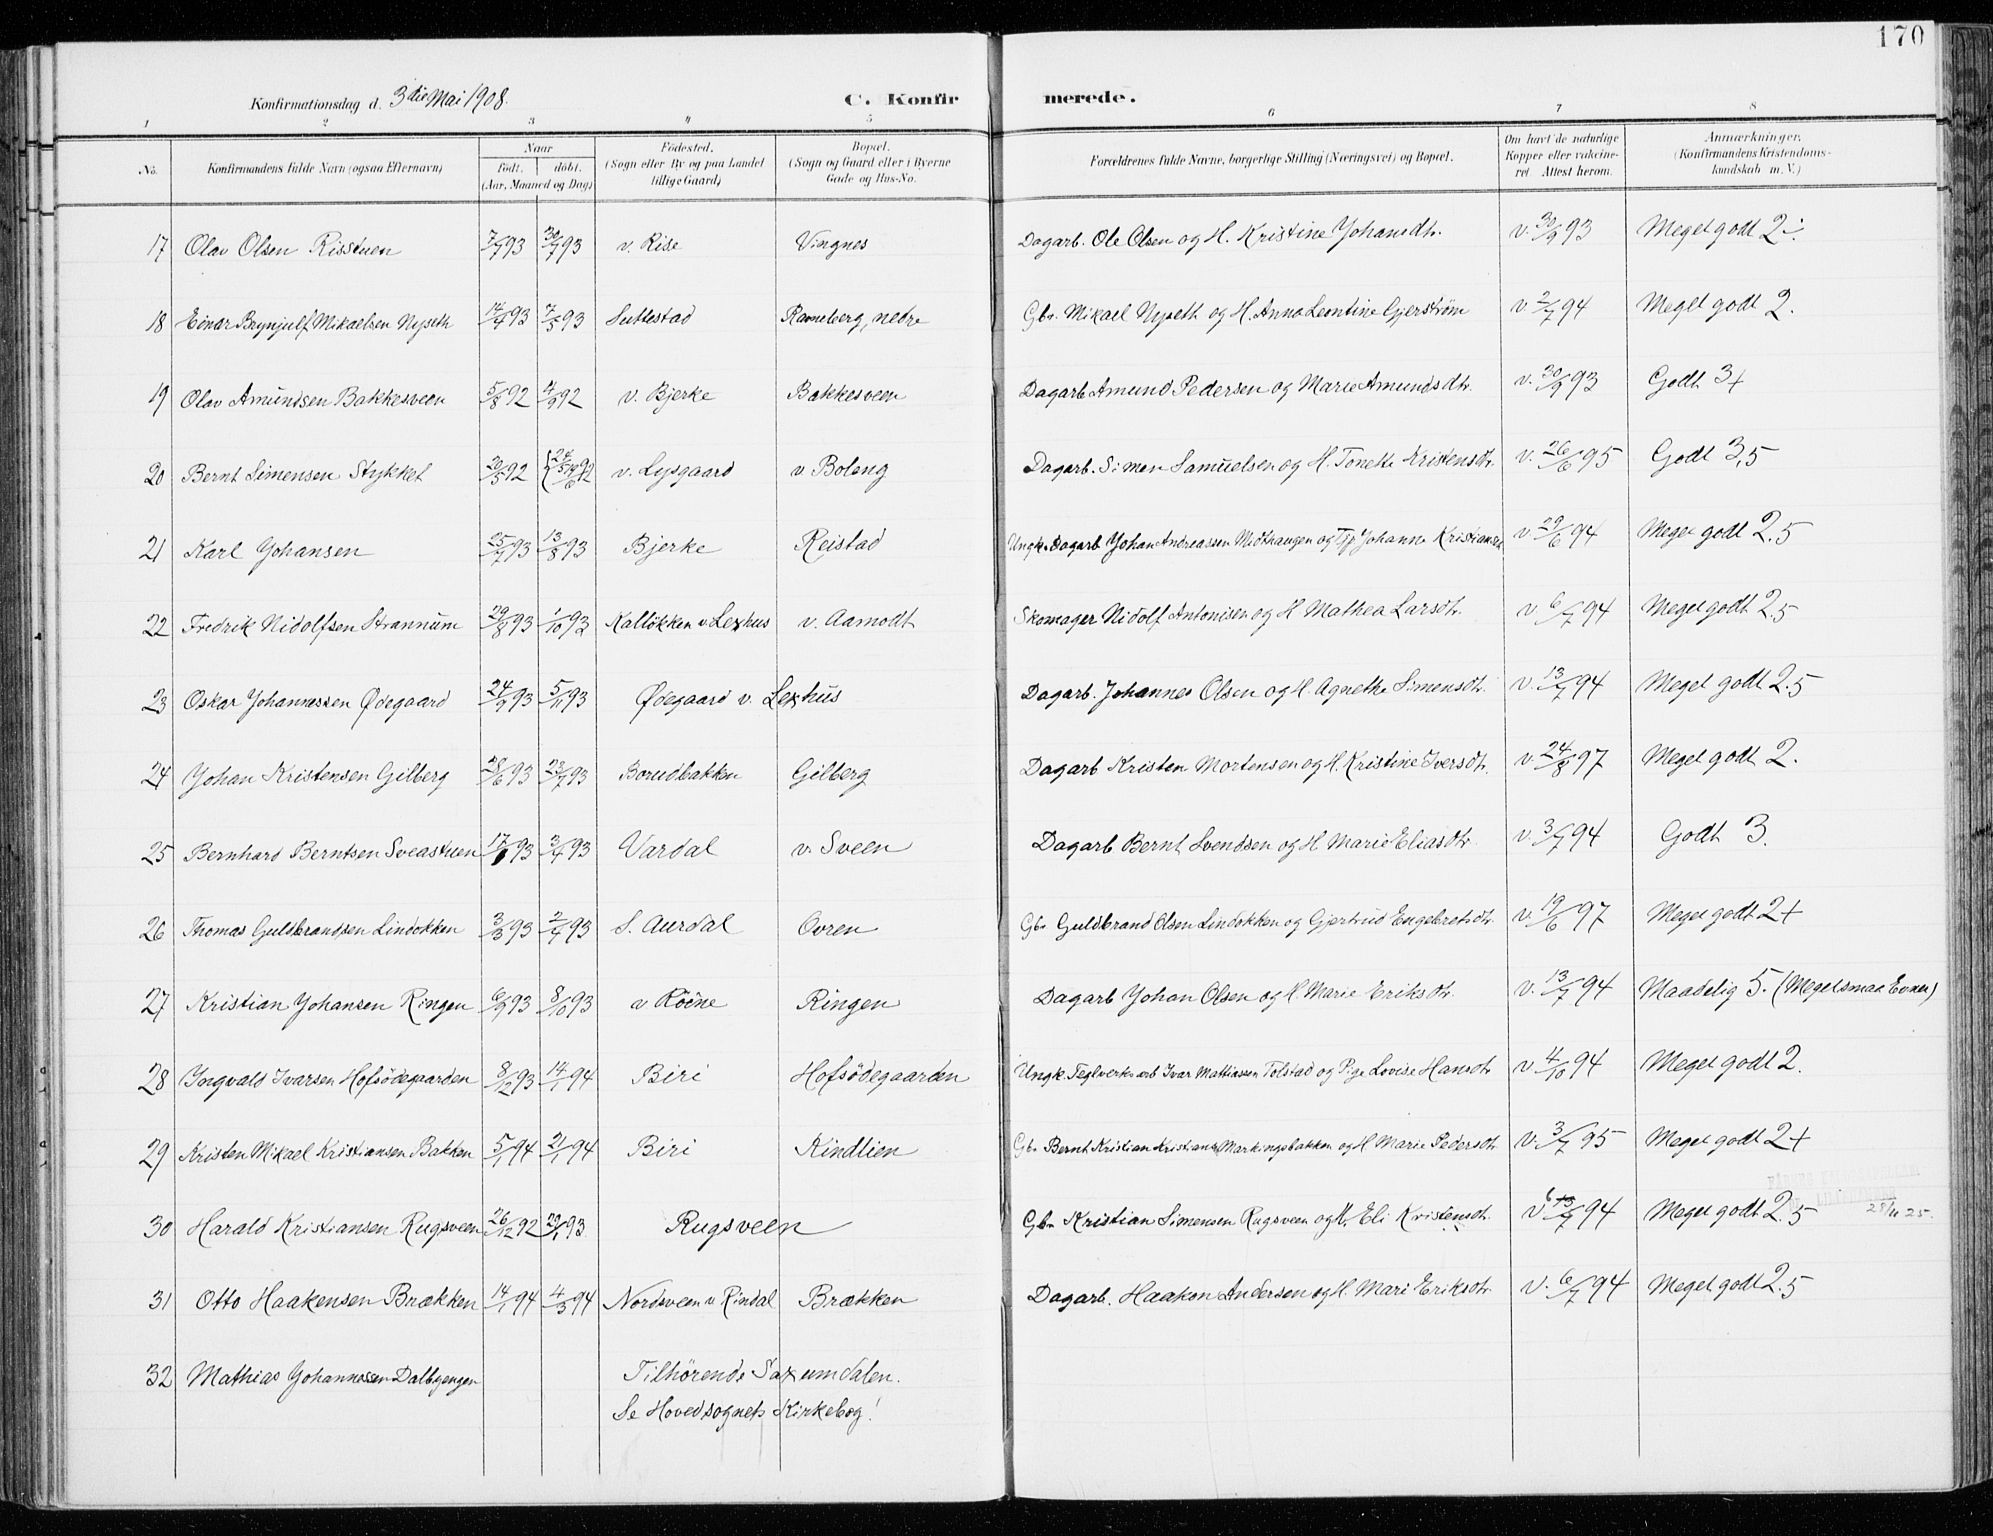 170
Konfirmationsdag d. 3die Mai 1908.
C. Konfirmerede.
1 2 3 4 5 6 7 8
No. Konfirmandens fulde Navn (ogsaa Efternavn) Naar født. døbt. (Aar, Maaned og Dag) Fødested. (Sogn eller By og paa Landet tillige Gaard) Bopæl. (Sogn og Gaard eller i Byerne Gade og Hus-No. Forældrenes fulde Navne, borgerlige Stilling (Næringsvei) og Bopæl. Om havt de naturlige Kopper eller vakcineret Attest herom. Anmærkninger. (Konfirmandens Kristendomskundskab m. V.)
17 Olav Olsen Risstuen 7/7 93 30/7 93 v. Rise Vingnes Dagarb. Ole Olsen og H. Kristine Johansdtr. v. 30/9 93 Meget godt 2÷
18 Einar Brynjulf Mikaelsen Nyseth 12/4 93 7/5 93 Suttestad Ravneberg, nedre Gbr. Mikael Nyseth og H. Anna Leontine Gjerstrøm v. 2/7 94 Meget godt 2.
19 Olav Amundsen Bakkesveen 5/8 92 4/9 92 v. Bjerke Bakkesveen Dagarb. Amund Pedersen og Marie Amundsdtr. v. 30/9 93 Godt 3+
20 Bernt Simensen Stykket 20/5 92 {24/5 19/6 92 v. Lysgaard v Boleng Dagarb. Simen Samuelsen og H. Tonette Kristensdtr. v. 26/6 95 Godt 3,5
21 Karl Johansen 25/7 93 13/8 93 Bjerke Reistad Ungk. Dagarb Johan Andreassen Midthaugen og Tjp Johanne Kristiansen v 29/6 94 Meget godt 2.5
22 Fredrik Nidolfsen Strannum 29/8 93 1/10 93 Kalløkken v. Lexhus v. Aamodt Skomager Nidolf Antonisen og H Mathea Larsdtr. v 6/7 94 Meget godt 2.5
23 Oskar Johannessen Ødegaard 24/9 93 5/11 93 Ødegaard v. Lexhus Dagarb. Johannes Olsen og H. Agnethe Simensdtr. v. 13/7 94 Meget godt 2.5
24 Johan Kristensen Gilberg 28/6 93 23/7 93 Borudbakken Gilberg Dagarb Kristen Mortensen og H. Kristine Iversdtr. v. 24/8 97 Meget godt 2.
25 Bernhard Berntsen Sveastuen 17/1 93 3/4 93 Vardal v. Sveen Dagarb. Bernt Svendsen og H Marie Eliasdtr. v. 3/7 94 Godt 3.
26 Thomas Guldbrandsen Lindokken 3/3 93 2/4 93 S. Aurdal Ovren Gbr Guldbrand Olsen Lindokken og Gjertrud Engebretsdtr. v. 19/6 97 Meget godt 2+
27 Kristian Johansen Ringen 6/9 93 8/10 93 v. Röine Ringen Dagarb Johan Olsen og H. Marie Eriksdtr. v. 13/7 94 Maadelig 5. (Meget smaa Evner)
28 Ingvald Ivarsen Hofsödegaarden 8/12 93 14/1 94 Biri Hofsödegaarden Ungk. Teglverksarb Ivar Mathiassen Tolstad og Pige Lovise Hansdtr v 4/10 94 Meget godt 2.
29 Kristen Mikael Kristiansen Bakken 5/1 94 21/1 94 Biri Kindlien Gbr Bernt Kristian Kristians. Markingsbakken og H Marie Pedersdtr v. 3/7 95 Meget godt 2+
30 Harald Kristiansen Rugsveen 26/12 92 29/1 93. Rugsveen Gbr Kristian Simensen Rugsveen og H. Eli Kristensdtr. v 6/7 94 Meget godt 2.5 28/11 25.
31 Otto Haakensen Brækken 14/1 94 4/3 94 Nordsveen v Rindal Brækken Dagarb. Haakon Andersen og H. Mari Eriksdtr. v. 6/7 94 Meget godt 2.5
32 Mathias Johannessen Dalbyengen Tilhørende Saxumdalen.
Se Hovedsognets Kirkebog!